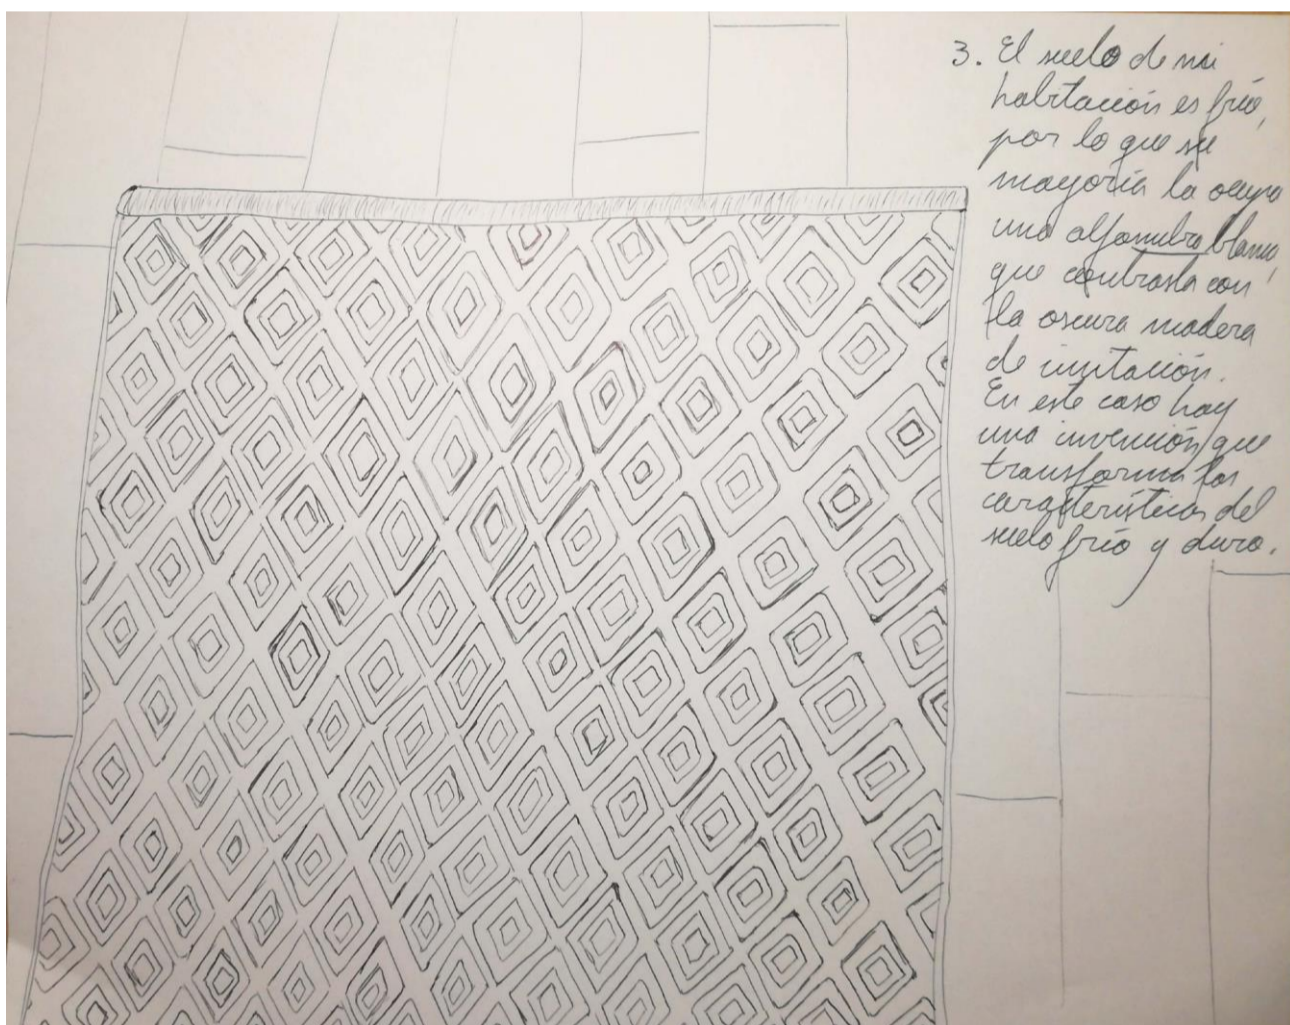 3. El suelo de mi
habitación es frío,
por lo que su
mayoría la ocupa
una alfombra blanca,
que contrasta con
la oscura madera
de imitación.
En este caso hay
una invención que
transforma las
características del
suelo frío y duro.